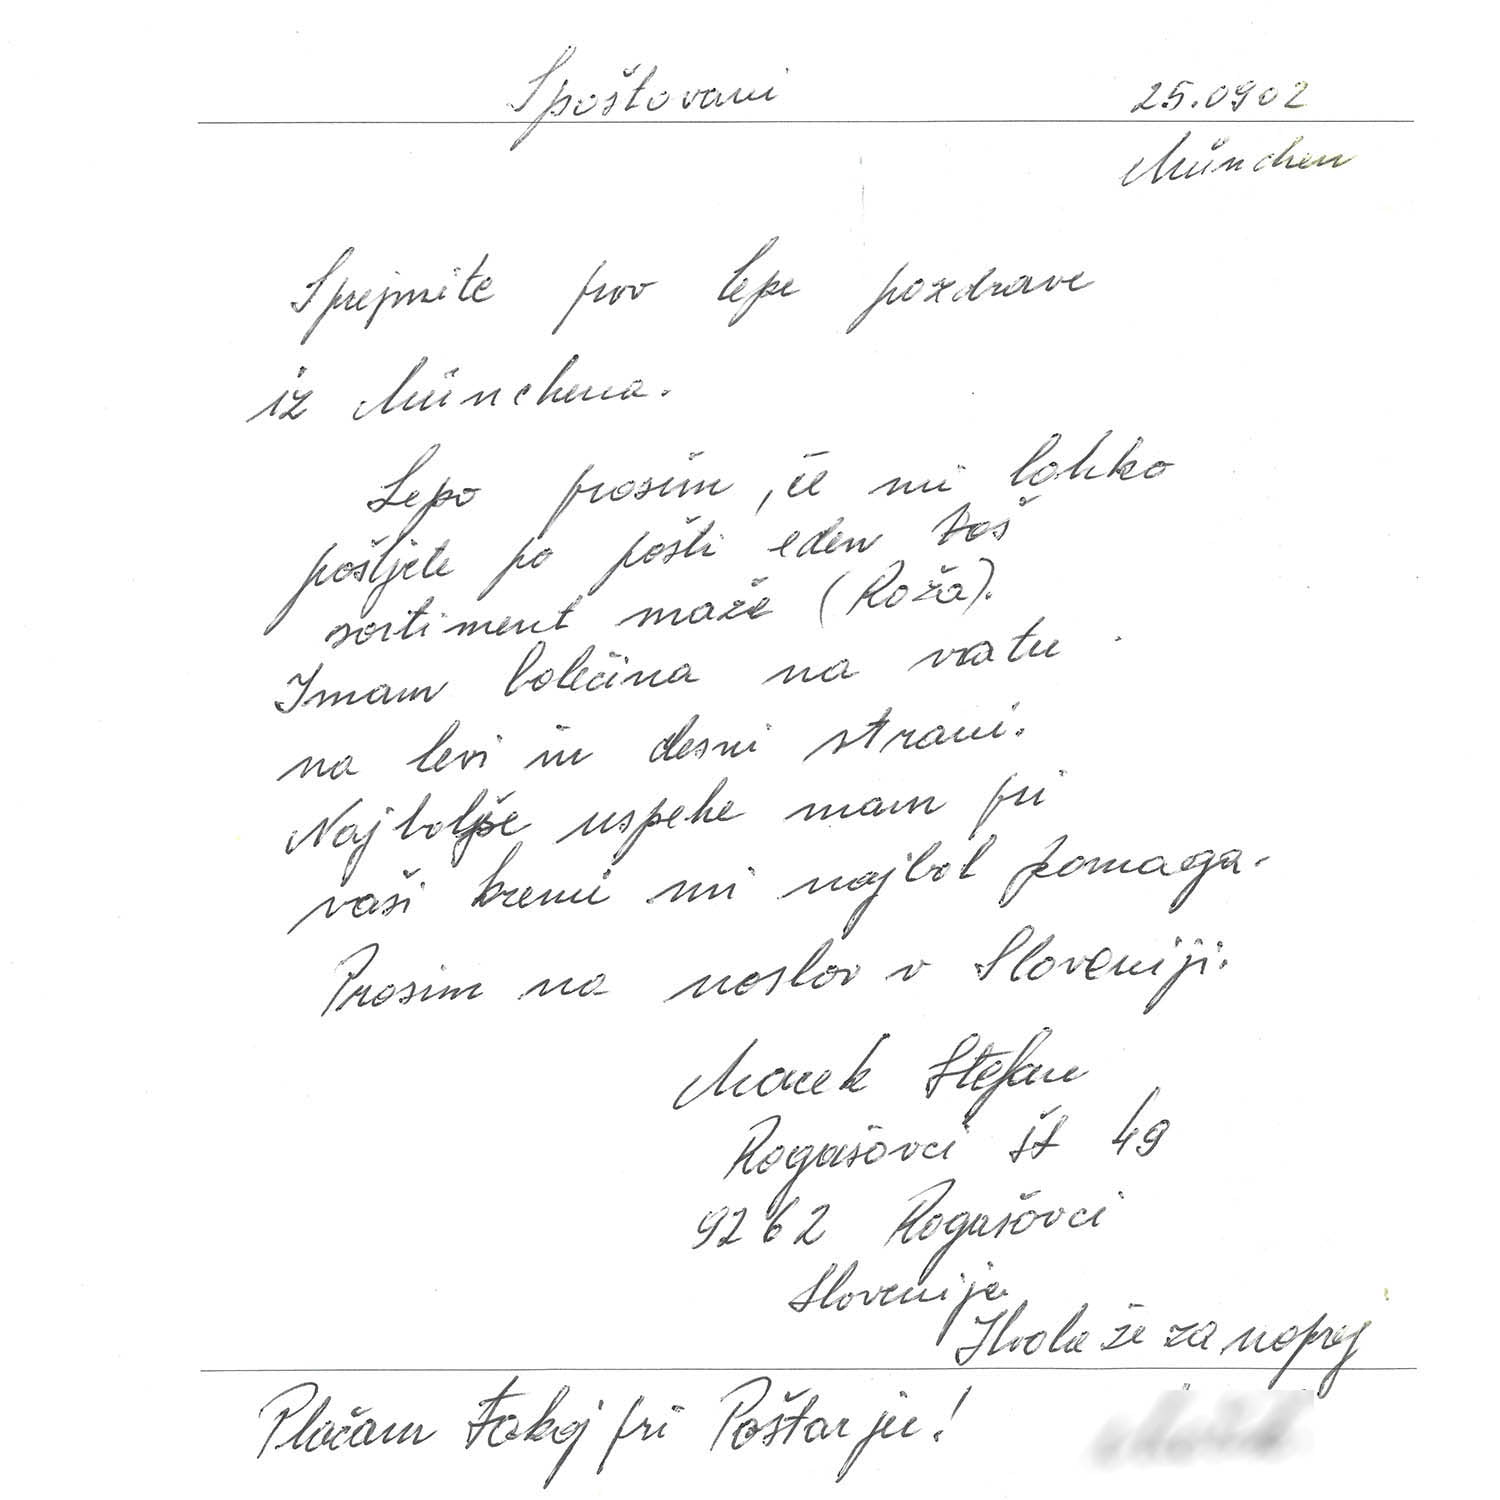 Spoštovani 25.0902
München
Sprejmite prov lepe pozdrave
iz Münchena.
Lepo prosim, če mi lahko
pošljete po pošti eden
sortiment maže (Roža).
Imam bolečina na vratu
na levi in desni strani.
Najboljše uspehe mam pri
vaši kremi mi najbol pomaga.
Prosim na noslov v Sloveniji.
Stefan
Rogašovci št 49
9262 Rogašovci
Slovenija
Hvala že za noprej
Plačam takoj pri Poštarju!